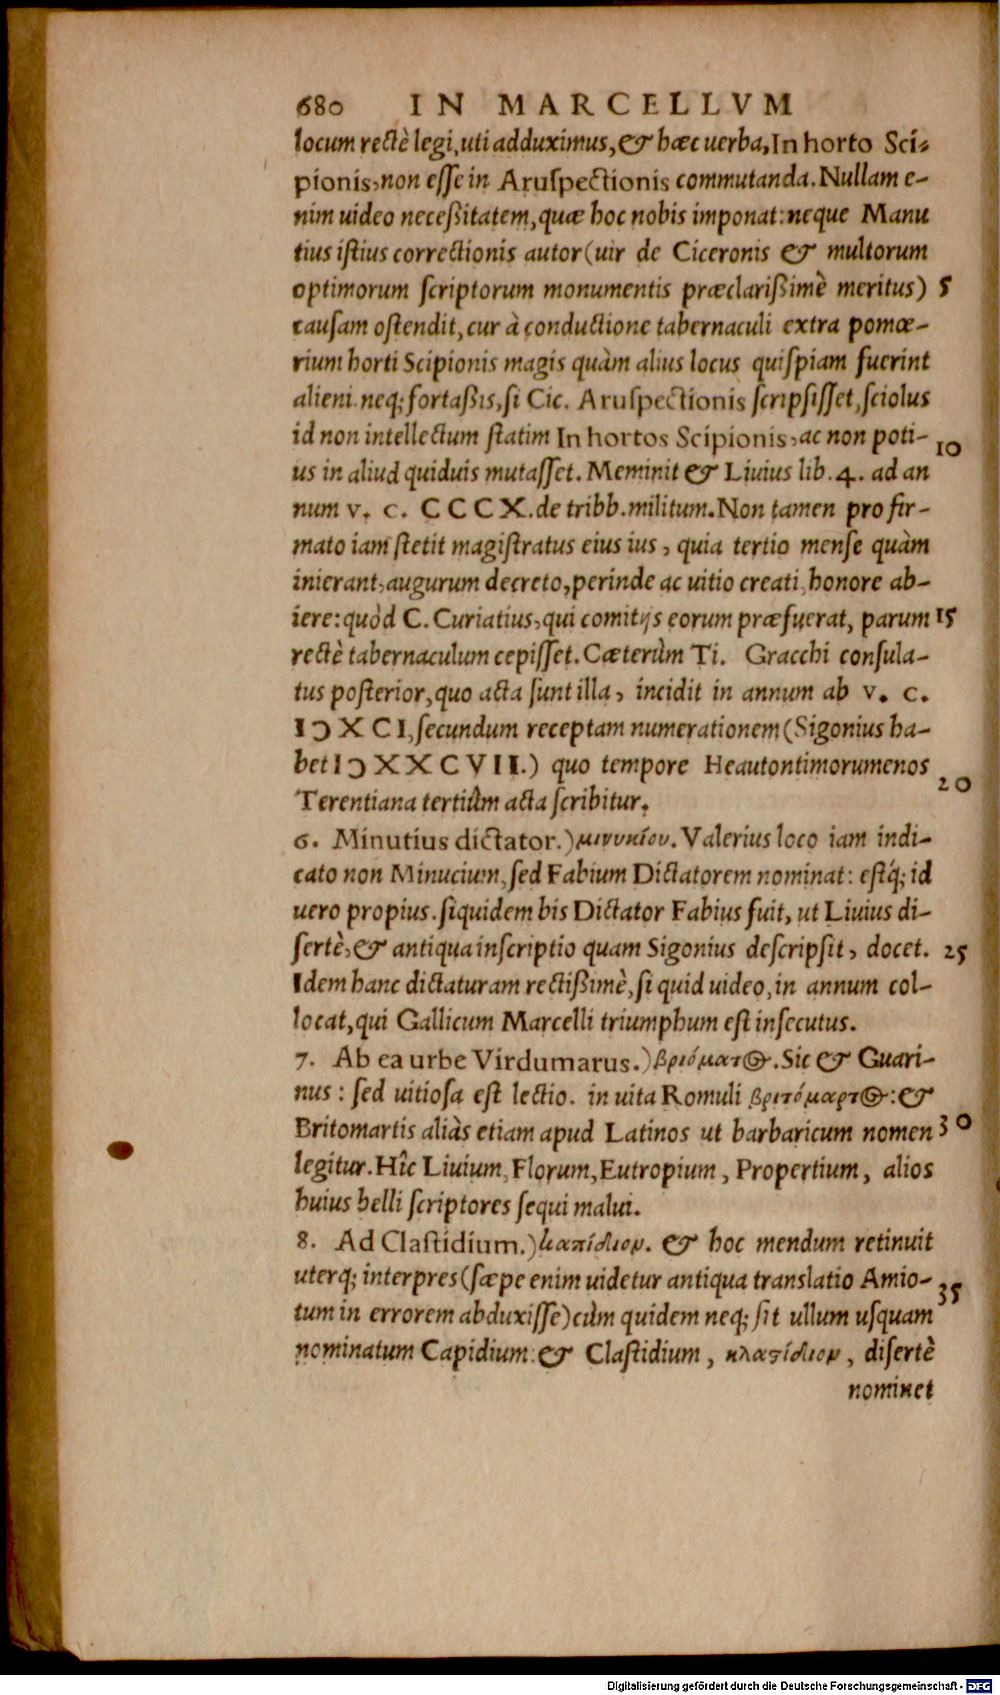 680 IN MARCELLVM
locum rectè legi, uti adduximus, & hæc uerba, In horto Sci-
pionis, non esse in Aruspectionis commutanda. Nullam e-
nim uideo necessitatem, quæ hoc nobis imponat: neque Manu
tius istius correctionis autor (uir de Ciceronis & multorum
optimorum scriptorum monumentis præclarissimè meritus) 5
causam ostendit, cur à conductione tabernaculi extra pomœ-
rium horti Scipionis magis quàm alius locus quispiam fuerint
alieni. neq; fortassis, si Cic. Aruspectionis scripsisset, sciolus
id non intellectum statim In hortos Scipionis, ac non poti-
us in aliud quiduis mutasset. Meminit & Liuius lib. 4. ad an 10
num v. c. CCCX. de tribb. militum. Non tamen pro fir-
mato iam stetit magistratus eius ius, quia tertio mense quàm
inierant, augurum decreto, perinde ac uitio creati, honore ab-
iere: quòd C. Curiatius, qui comitijs eorum præfuerat, parum 15
rectè tabernaculum cepisset. Cæterùm Ti. Gracchi consula-
tus posterior, quo acta sunt illa, incidit in annum ab v. c.
IↃXCI, secundum receptam numerationem (Sigonius ha-
bet IↃXXCVII.) quo tempore Heautontimorumenos
Terentiana tertiùm acta scribitur. 20
6. Minutius dictator.) μινυκίου. Valerius loco iam indi-
cato non Minucium, sed Fabium Dictatorem nominat: estq́; id
uero propius. siquidem bis Dictator Fabius fuit, ut Liuius di-
sertè, & antiqua inscriptio quam Sigonius descripsit, docet. 25
Idem hanc dictaturam rectissimè, si quid uideo, in annum col-
locat, qui Gallicum Marcelli triumphum est insecutus.
7. Ab ea urbe Virdumarus.) βριόματος. Sic & Guari-
nus: sed uitiosa est lectio. in uita Romuli βριτόμαρτος: &
Britomartis aliàs etiam apud Latinos ut barbaricum nomen 30
legitur. Hîc Liuium, Florum, Eutropium, Propertium, alios
huius belli scriptores sequi malui.
8. Ad Clastidium.) καπίδιον. & hoc mendum retinuit
uterq; interpres (sæpe enim uidetur antiqua translatio Amio-
tum in errorem abduxisse) cùm quidem neq; sit ullum usquam 35
nominatum Capidium: & Clastidium, κλαστίδιον, disertè
nominet
Digitalisierung gefördert durch die Deutsche Forschungsgemeinschaft - DFG